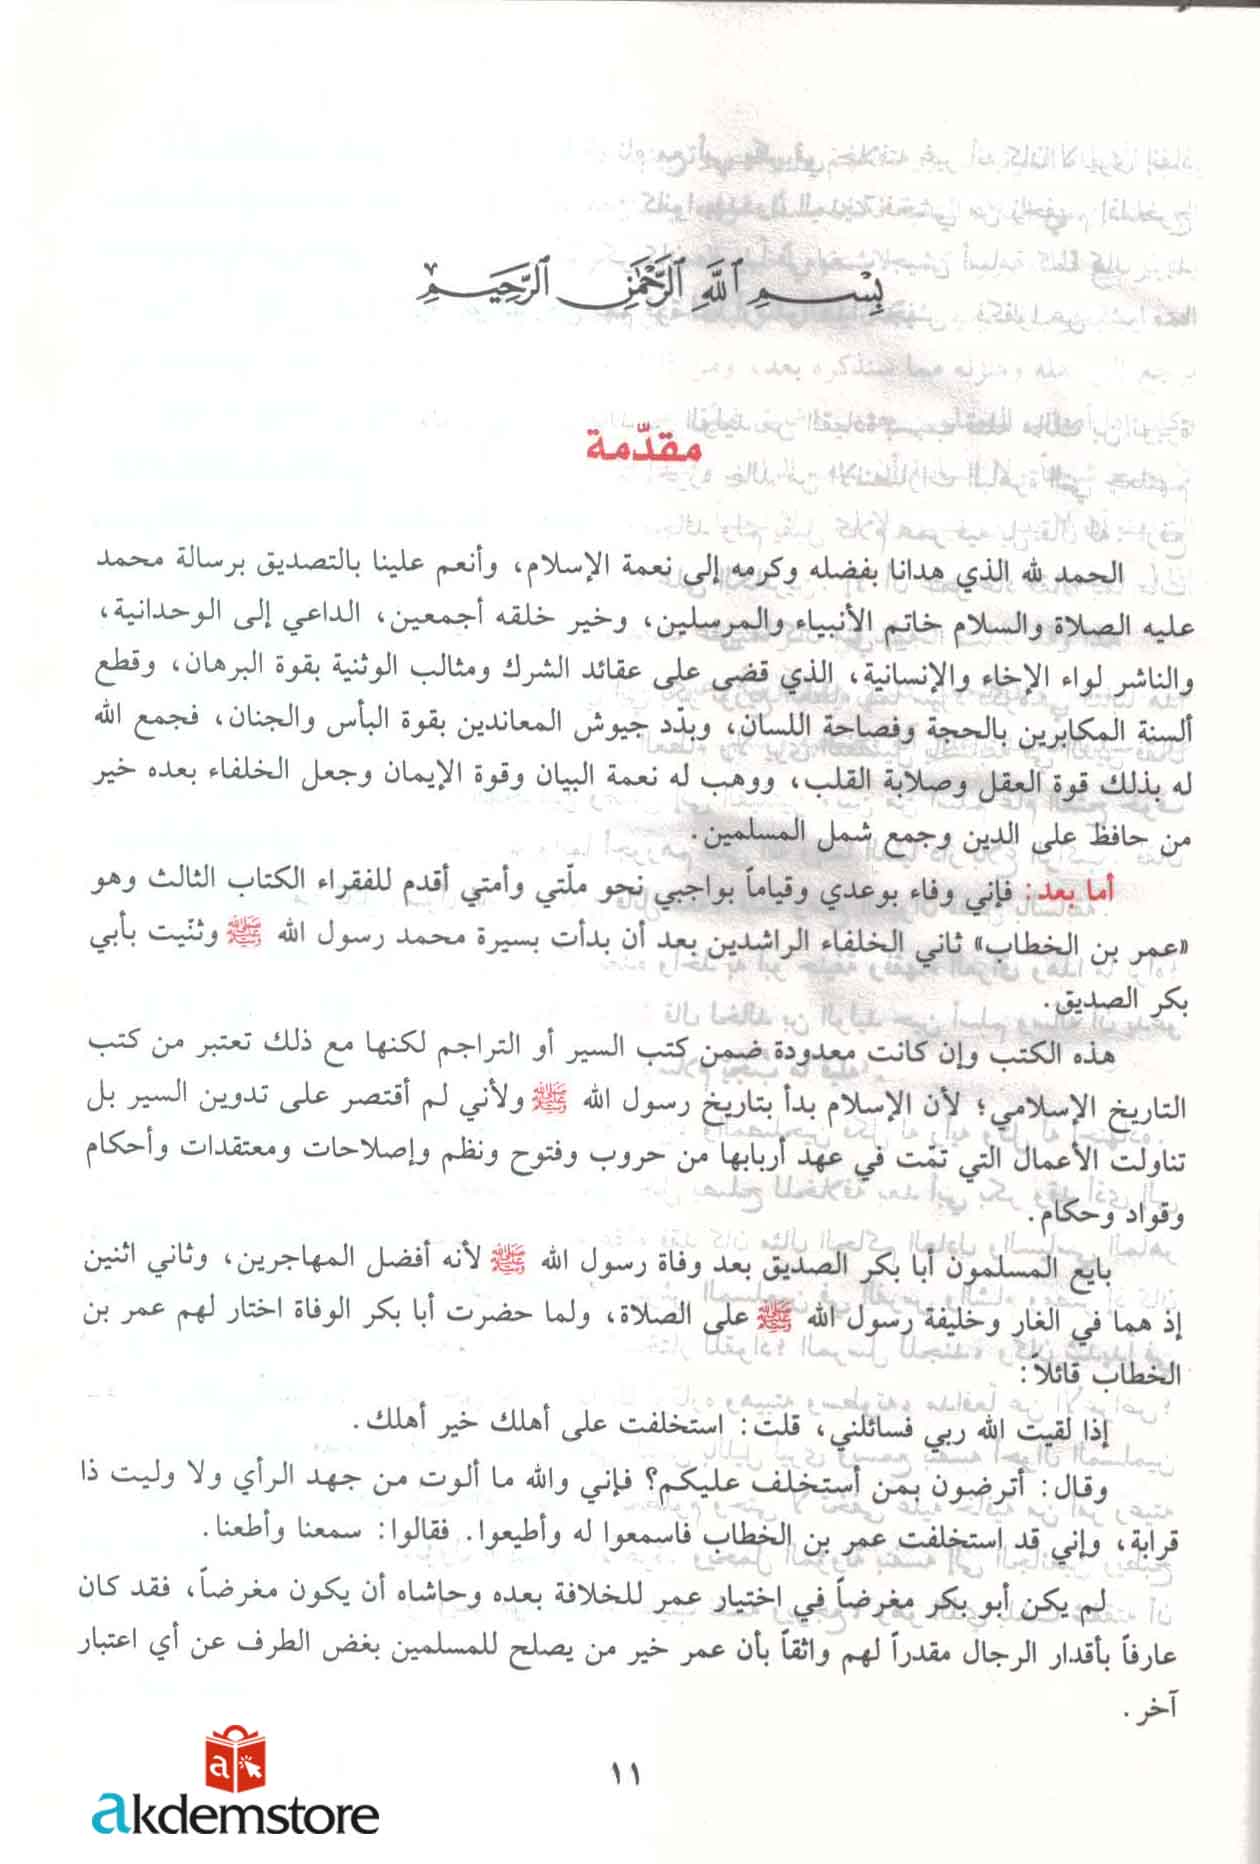 بِسْمِ ٱللَّهِ ٱلرَّحْمَٰنِ ٱلرَّحِيمِ
مقدّمة
الحمد لله الذي هدانا بفضله وكرمه إلى نعمة الإسلام، وأنعم علينا بالتصديق برسالة محمد
عليه الصلاة والسلام خاتم الأنبياء والمرسلين، وخير خلقه أجمعين، الداعي إلى الوحدانية،
والناشر لواء الإخاء والإنسانية، الذي قضى على عقائد الشرك ومثالب الوثنية بقوة البرهان، وقطع
ألسنة المكابرين بالحجة وفصاحة اللسان، وبدّد جيوش المعاندين بقوة البأس والجنان، فجمع الله
له بذلك قوة العقل وصلابة القلب، ووهب له نعمة البيان وقوة الإيمان وجعل الخلفاء بعده خير
من حافظ على الدين وجمع شمل المسلمين.
أما بعد: فإني وفاء بوعدي وقياماً بواجبي نحو ملّتي وأمتي أقدم للفقراء الكتاب الثالث وهو
«عمر بن الخطاب» ثاني الخلفاء الراشدين بعد أن بدأت بسيرة محمد رسول الله ﷺ وثنّيت بأبي
بكر الصديق.
هذه الكتب وإن كانت معدودة ضمن كتب السير أو التراجم لكنها مع ذلك تعتبر من كتب
التاريخ الإسلامي؛ لأن الإسلام بدأ بتاريخ رسول الله ﷺ ولأني لم أقتصر على تدوين السير بل
تناولت الأعمال التي تمّت في عهد أربابها من حروب وفتوح ونظم وإصلاحات ومعتقدات وأحكام
وقواد وحكام.
بايع المسلمون أبا بكر الصديق بعد وفاة رسول الله ﷺ لأنه أفضل المهاجرين، وثاني اثنين
إذ هما في الغار وخليفة رسول الله ﷺ على الصلاة، ولما حضرت أبا بكر الوفاة اختار لهم عمر بن
الخطاب قائلاً:
إذا لقيت الله ربي فسائلني، قلت: استخلفت على أهلك خير أهلك.
وقال: أترضون بمن أستخلف عليكم؟ فإني والله ما ألوت من جهد الرأي ولا وليت ذا
قرابة، وإني قد استخلفت عمر بن الخطاب فاسمعوا له وأطيعوا. فقالوا: سمعنا وأطعنا.
لم يكن أبو بكر مغرضاً في اختيار عمر للخلافة بعده وحاشاه أن يكون مغرضاً، فقد كان
عارفاً بأقدار الرجال مقدراً لهم واثقاً بأن عمر خير من يصلح للمسلمين بغض الطرف عن أي اعتبار
آخر.
١١
a
akdemstore